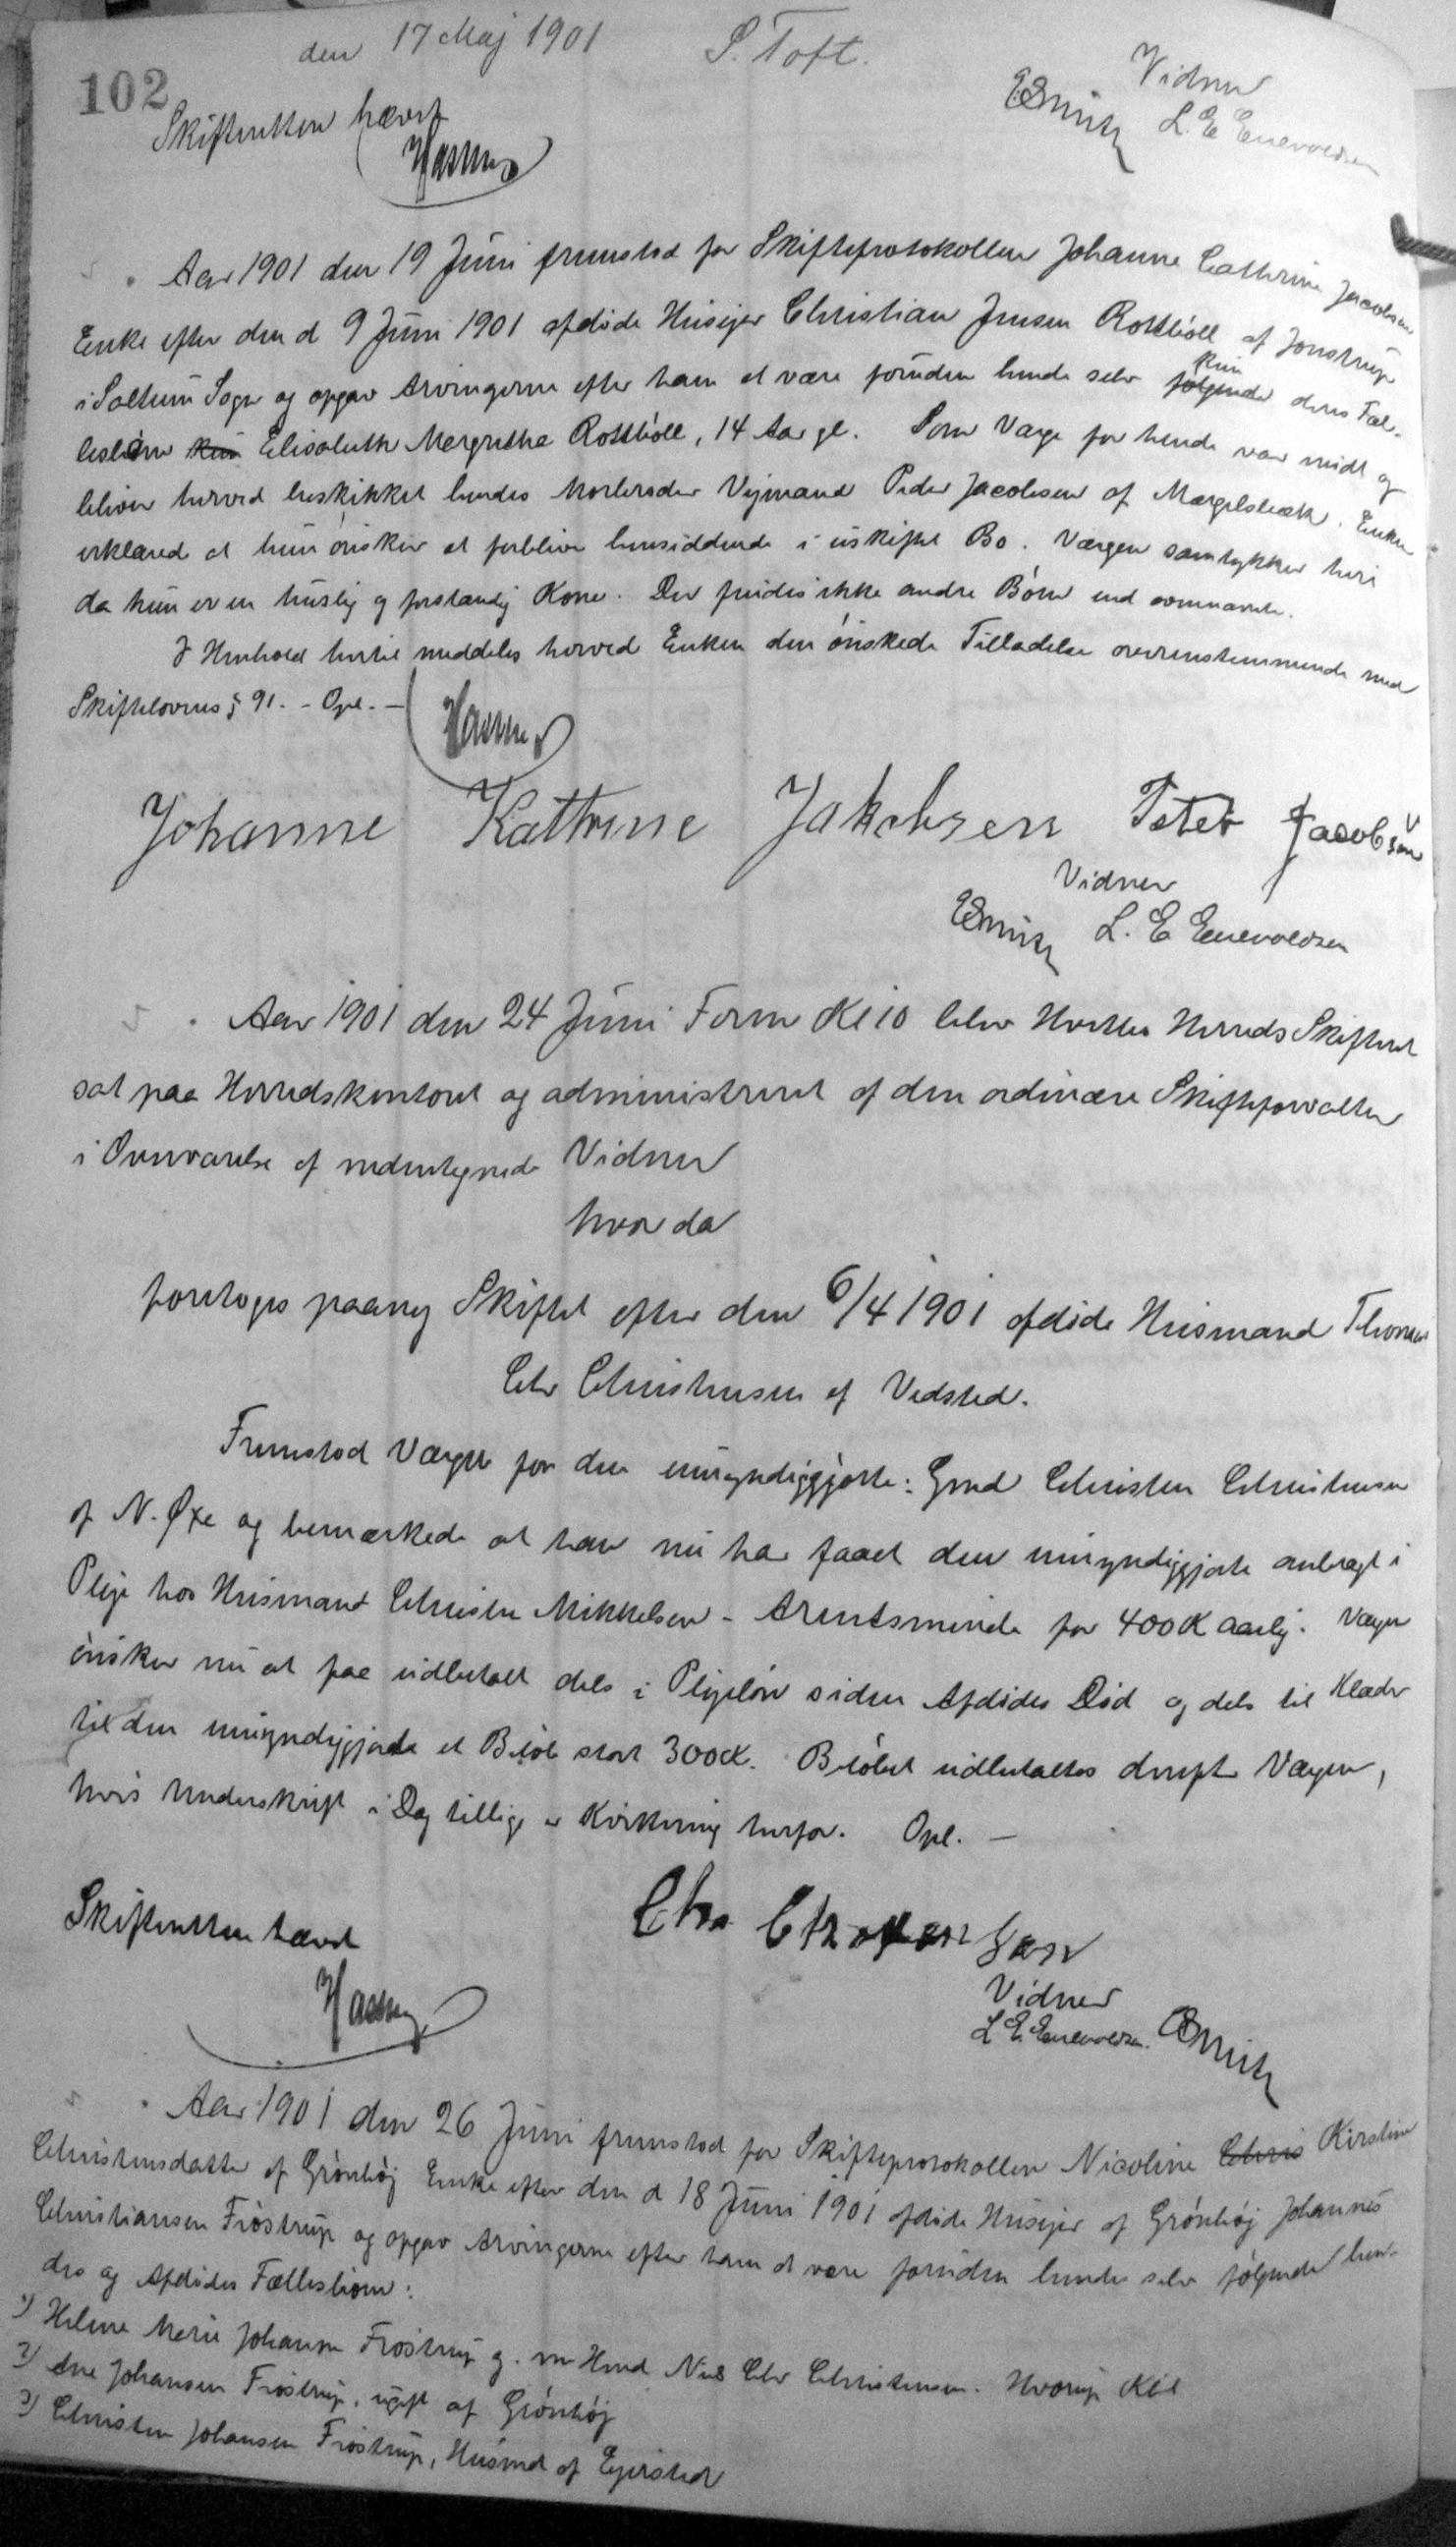 102
den 17 Maj 1901 S. Toft.
Vidner
ESmith L. E Enevoldsen
Skifteretten hævet
Aar 1901 den 19 Juni fremstod for Skifteprotokollen Johanne Cathrine Jacobsen
Enke efter den d 9 Juni 1901 afdøde Husejer Christian Jensen Rottbøll af Jonstrup
i Saltum Sogn og opgav Arvingerne efter ham at være foruden hende selv følgende kun deres Fæl-
lesbørn kun Elisabeth Margrethe Rottbøll, 14 Aar gl. Som Værge for hende var mødt og
bliver herved beskikket hendes Morbroder Vejmand Peder Jacobsen af Mærgelsbæk. Enken
erklæred at hun ønsker at forblive hensiddende i uskiftet Bo. Værgen samtykker heri
da hun er en huslig og forstandig Kone. Der findes ikke andre Børn end ovennævnte.
I Henhold hertil meddeles herved Enken den ønskede Tilladelse overensstemmende med
Skiftelovens § 91. - Opl. -
Johanne Kathrine Jakobsen Peter Jacobsen
Vidner
ESmith L. E Enevoldsen
Aar 1901 den 24 Juni Form Kl 10 blev Hvetbo Herreds Skifteret
sat paa Herredskontoret og administreret af den ordinære Skifteforvalter
i Overværelse af undertegnede Vidner
hvor da
foretoges paany Skiftet efter den 6/4 1901 afdøde Husmand Thomas
Chr Christensen af Vedsted.
Fremstod Værgen for den umyndiggjorte: Grmd Christen Christensen
af N. Øxe og bemærkede at han nu har faaet den umyndiggjorte anbragt i
Pleje hos Husmand Christen Mikkelsen - Arentsminde for 400 K aarlig. Værgen
ønsker nu at faa udbetalt dels i Plejeløn siden Afdødes Død og dels til Klæder
til den umyndiggjorte et Beløb stort 300 K. Beløbet udbetaltes derefter Værgen,
hvis Underskrift i Dag tillige er Kvittering herfor. Opl. -
Skifteretten hævet
Chr Christensen
Vidner
L E Enevoldsen. ESmith
Aar 1901 den 26 Juni fremstod for Skifteprotokollen Nicoline Chris Kirstine
Christensdatter af Grønhøj Enke efter den d 18 Juni 1901 afdøde Husejer af Grønhøj Johannes
Christiansen Frøstrup og opgav Arvingerne efter ham at være foruden hende selv følgende hen-
des og Afdødes Fællesbørn:
1) Helene Marie Johansen Frøstrup g. m Hmd Niels Chr Christensen. Hvorup Kær
2) Ane Johansen Frøstrup, ugift af Grønhøj
3) Christen Johansen Frøstrup, Husmd af Ejersted